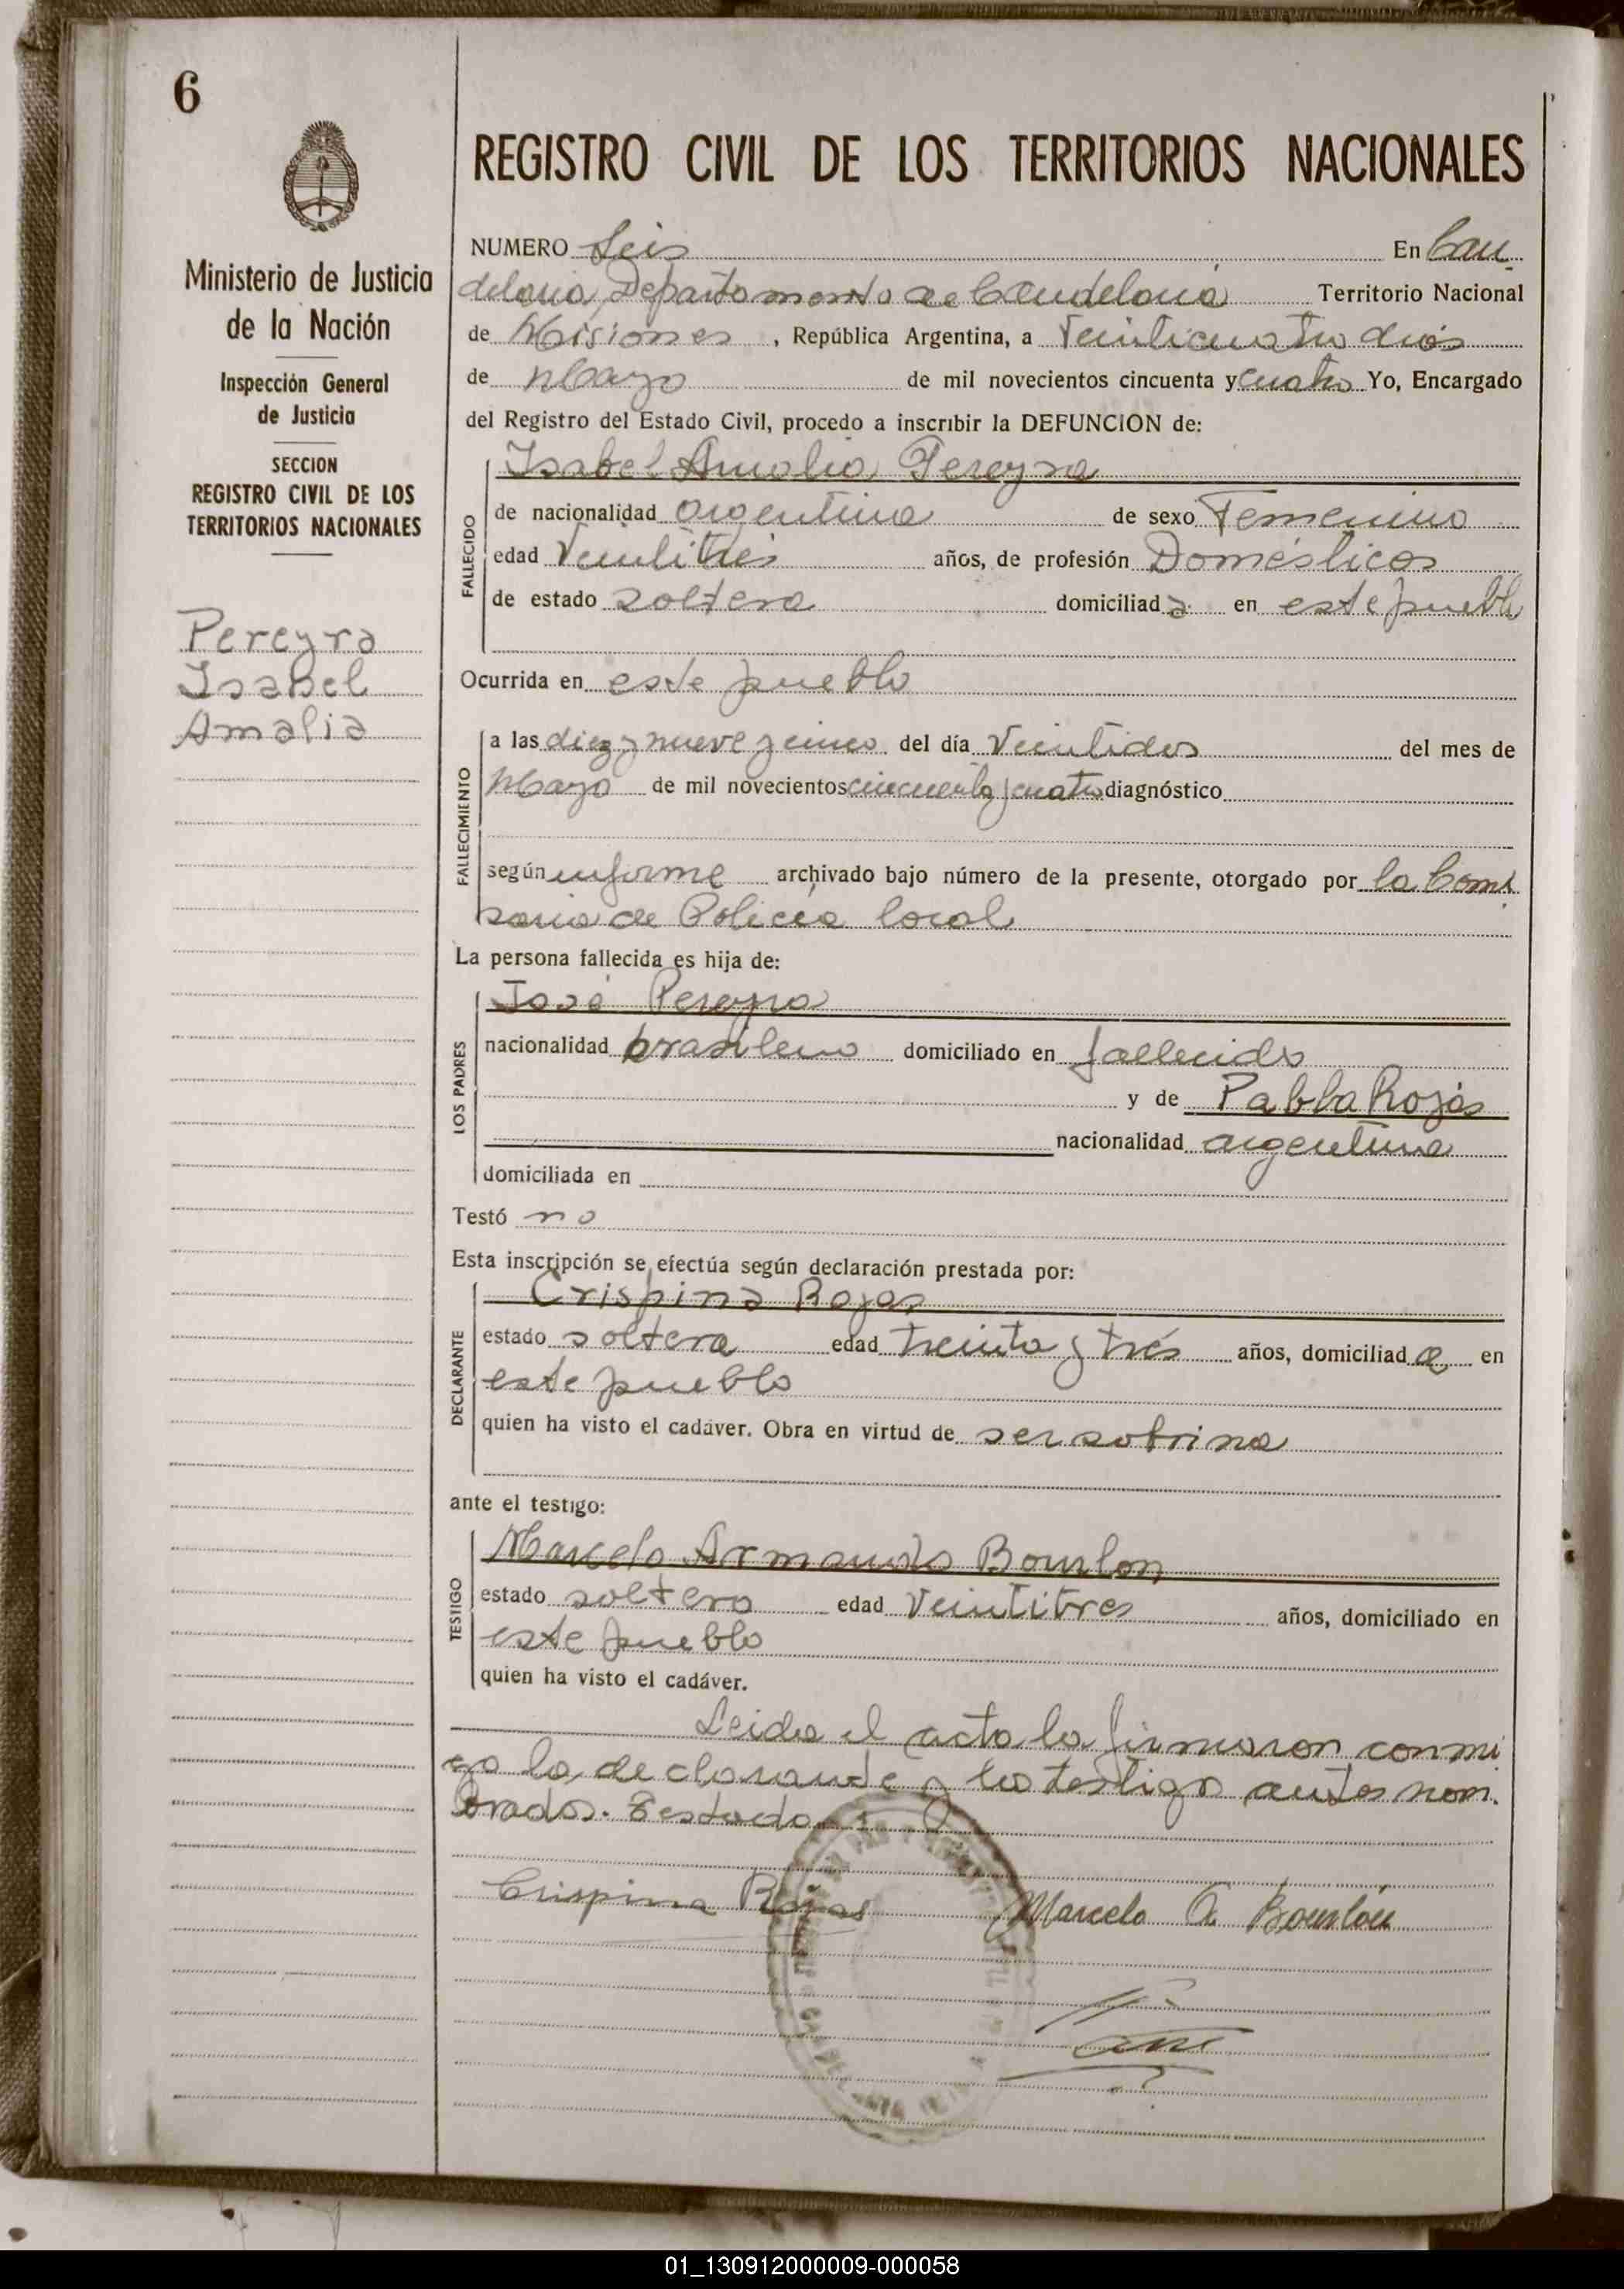 6
REGISTRO CIVIL DE LOS TERRITORIOS NACIONALES
Ministerio de Justicia
de la Nación
Inspección General
de Justicia
SECCION
REGISTRO CIVIL DE LOS
TERRITORIOS NACIONALES
Pereyra
Isabel
Amalia
NUMERO Seis En Can
delaria, Departamento de Candelaria Territorio Nacional
de Misiones, República Argentina, a Veinticuatro dias
de Mayo de mil novecientos cincuenta y cuatro Yo, Encargado
del Registro del Estado Civil, procedo a inscribir la DEFUNCION de:
FALLECIDO
Isabel Amalia Pereyra
de nacionalidad argentina de sexo Femenino
edad Veintitrés años, de profesión Domésticos
de estado soltera domiciliada en este pueblo
Ocurrida en este pueblo
FALLECIMIENTO
a las diez y nueve y cinco del día Veintidos del mes de
Mayo de mil novecientos cincuenta y cuatro diagnóstico
según informe archivado bajo número de la presente, otorgado por la Comi
saria de Policía local
La persona fallecida es hija de:
LOS PADRES
José Pereyra
nacionalidad brasileno domiciliado en fallecido
y de Pabla Rojas
nacionalidad argentina
domiciliada en
Testó no
Esta inscripción se efectúa según declaración prestada por:
DECLARANTE
Crispina Rojas
estado soltera edad treinta y trés años, domiciliada en
este pueblo
quien ha visto el cadáver. Obra en virtud de ser sobrina
ante el testigo:
TESTIGO
Marcelo Armando Bourlon
estado soltero edad Veintitres años, domiciliado en
este pueblo
quien ha visto el cadáver.
Leida el acta la firmaron conmi
go la declarante y los testigo antes nom.
brados. Testado
Crispina Rojas Marcelo A. Bourlón
01_130912000009-000058